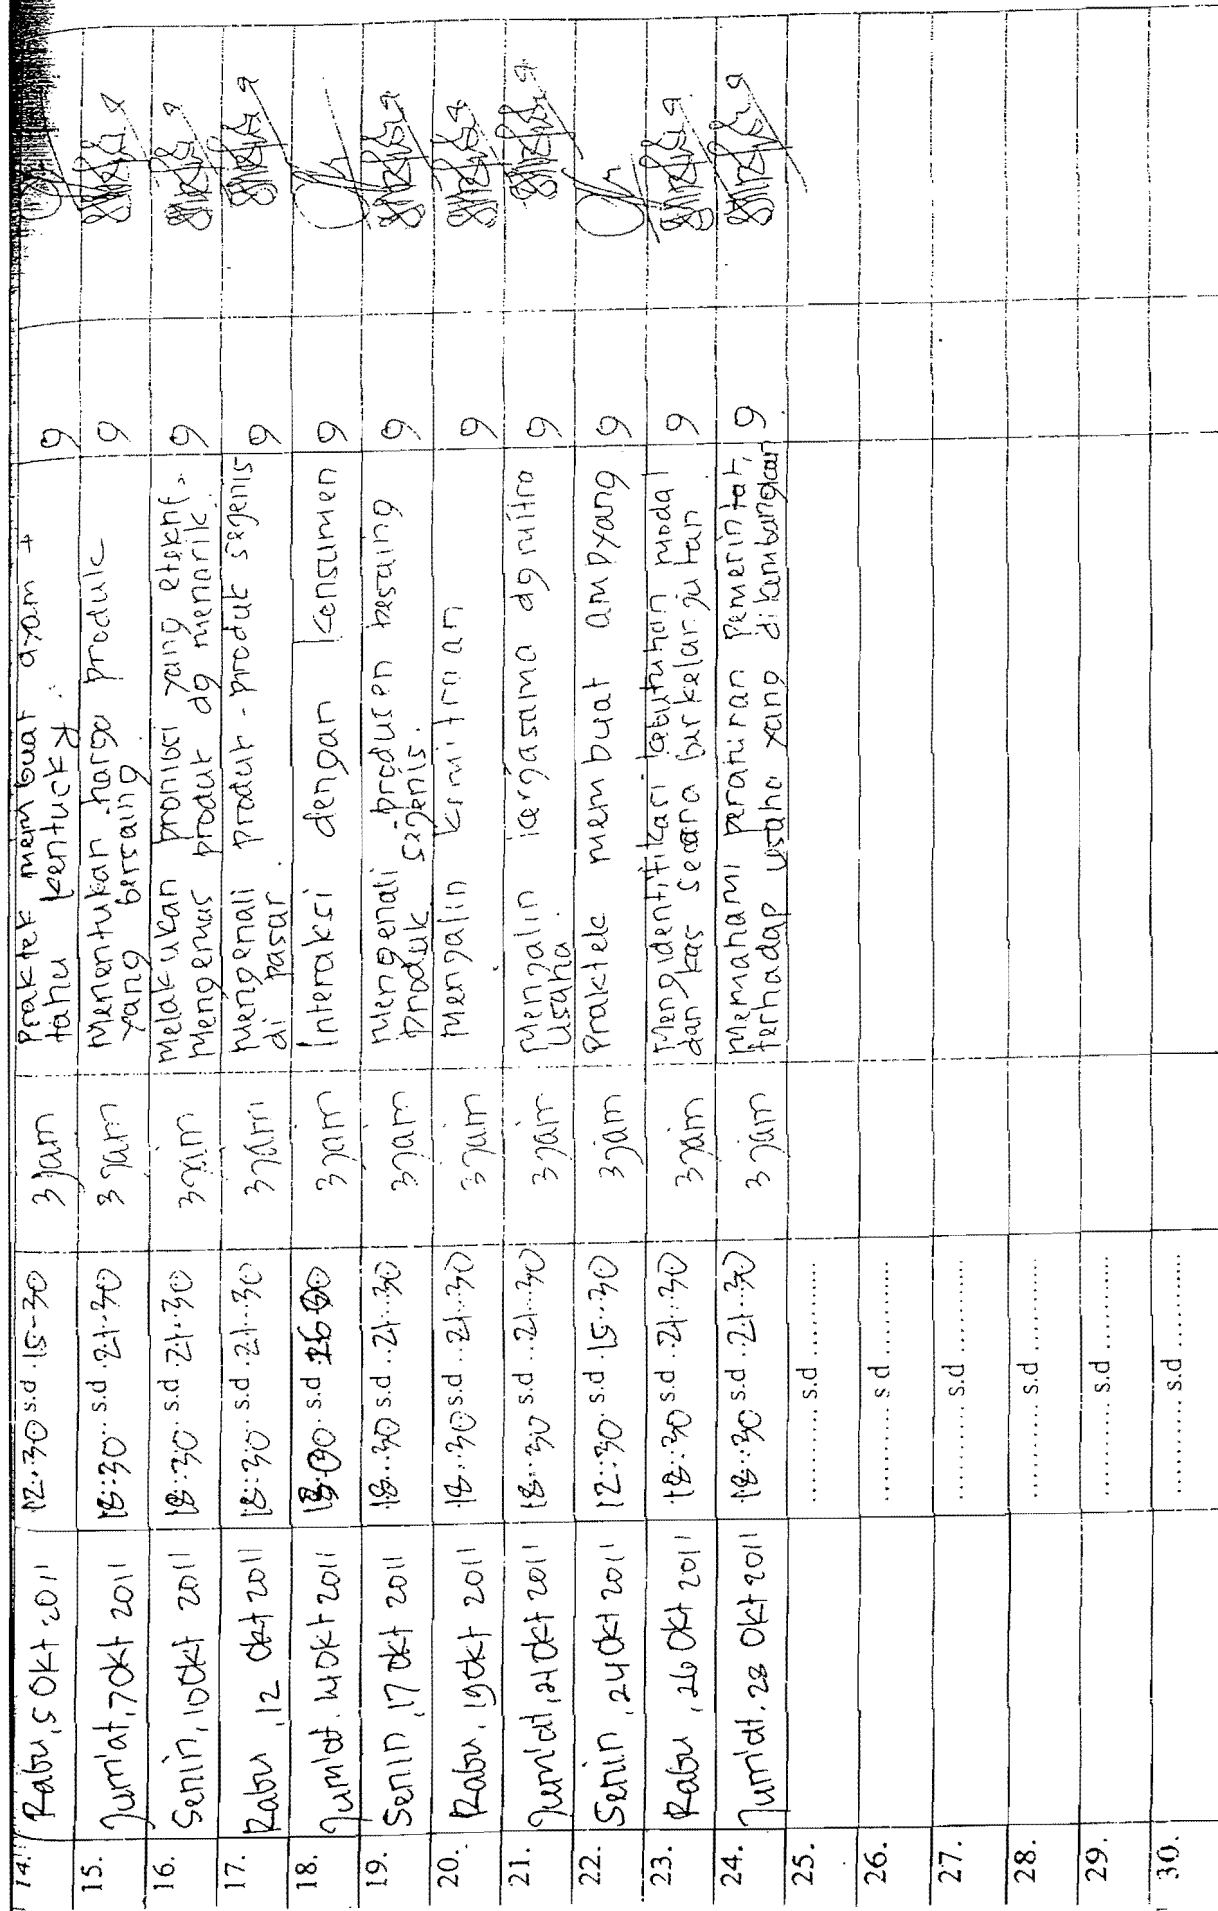 14. Rabu, 5 Okt 2011 12.30 s.d 15-30 3 jam Praktek membuat ayam + 9
tahu kentucky.
15. Jum'at, 7 Okt 2011 18:30 s.d 21.30 3 jam Menentukan harga produk 9
yang bersaing
16. Senin, 10 Okt 2011 18:30 s.d 21.30 3 jam Melakukan promosi yang efektif. 9
Mengemas produk dg menarik.
17. Rabu, 12 Okt 2011 18:30 s.d 21.30 3 jam Mengenali produk - produk sejenis 9
di pasar.
18. Jum'at. 14 Okt 2011 s.d 3 jam Interaksi dengan konsumen 9
19. Senin, 17 Okt 2011 18.30 s.d 21.30 3 jam Mengenali produsen pesaing 9
produk sejenis.
20. Rabu, 19 Okt 2011 18.30 s.d 21.30 3 jam Menjalin kemitraan 9
21. Jum'at, 21 Okt 2011 18.30 s.d 21.30 3 jam Menjalin kerjasama dg mitra 9
usaha.
22. Senin, 24 Okt 2011 12.30 s.d 15.30 3 jam Praktek membuat ampyang 9
23. Rabu, 26 Okt 2011 18:30 s.d 21.30 3 jam Mengidentifikasi kebutuhan modal 9
dan kas secara berkelanjutan
24. Jum'at. 28 Okt 2011 18:30 s.d 21.30 3 jam Memahami peraturan pemerintah, 9
terhadap usaha yang dikembangkan
25. .......... s.d ..........
26. .......... s d ..........
27. .......... s.d ..........
28. .......... s.d ..........
29. .......... s.d ..........
30. .......... s.d ..........